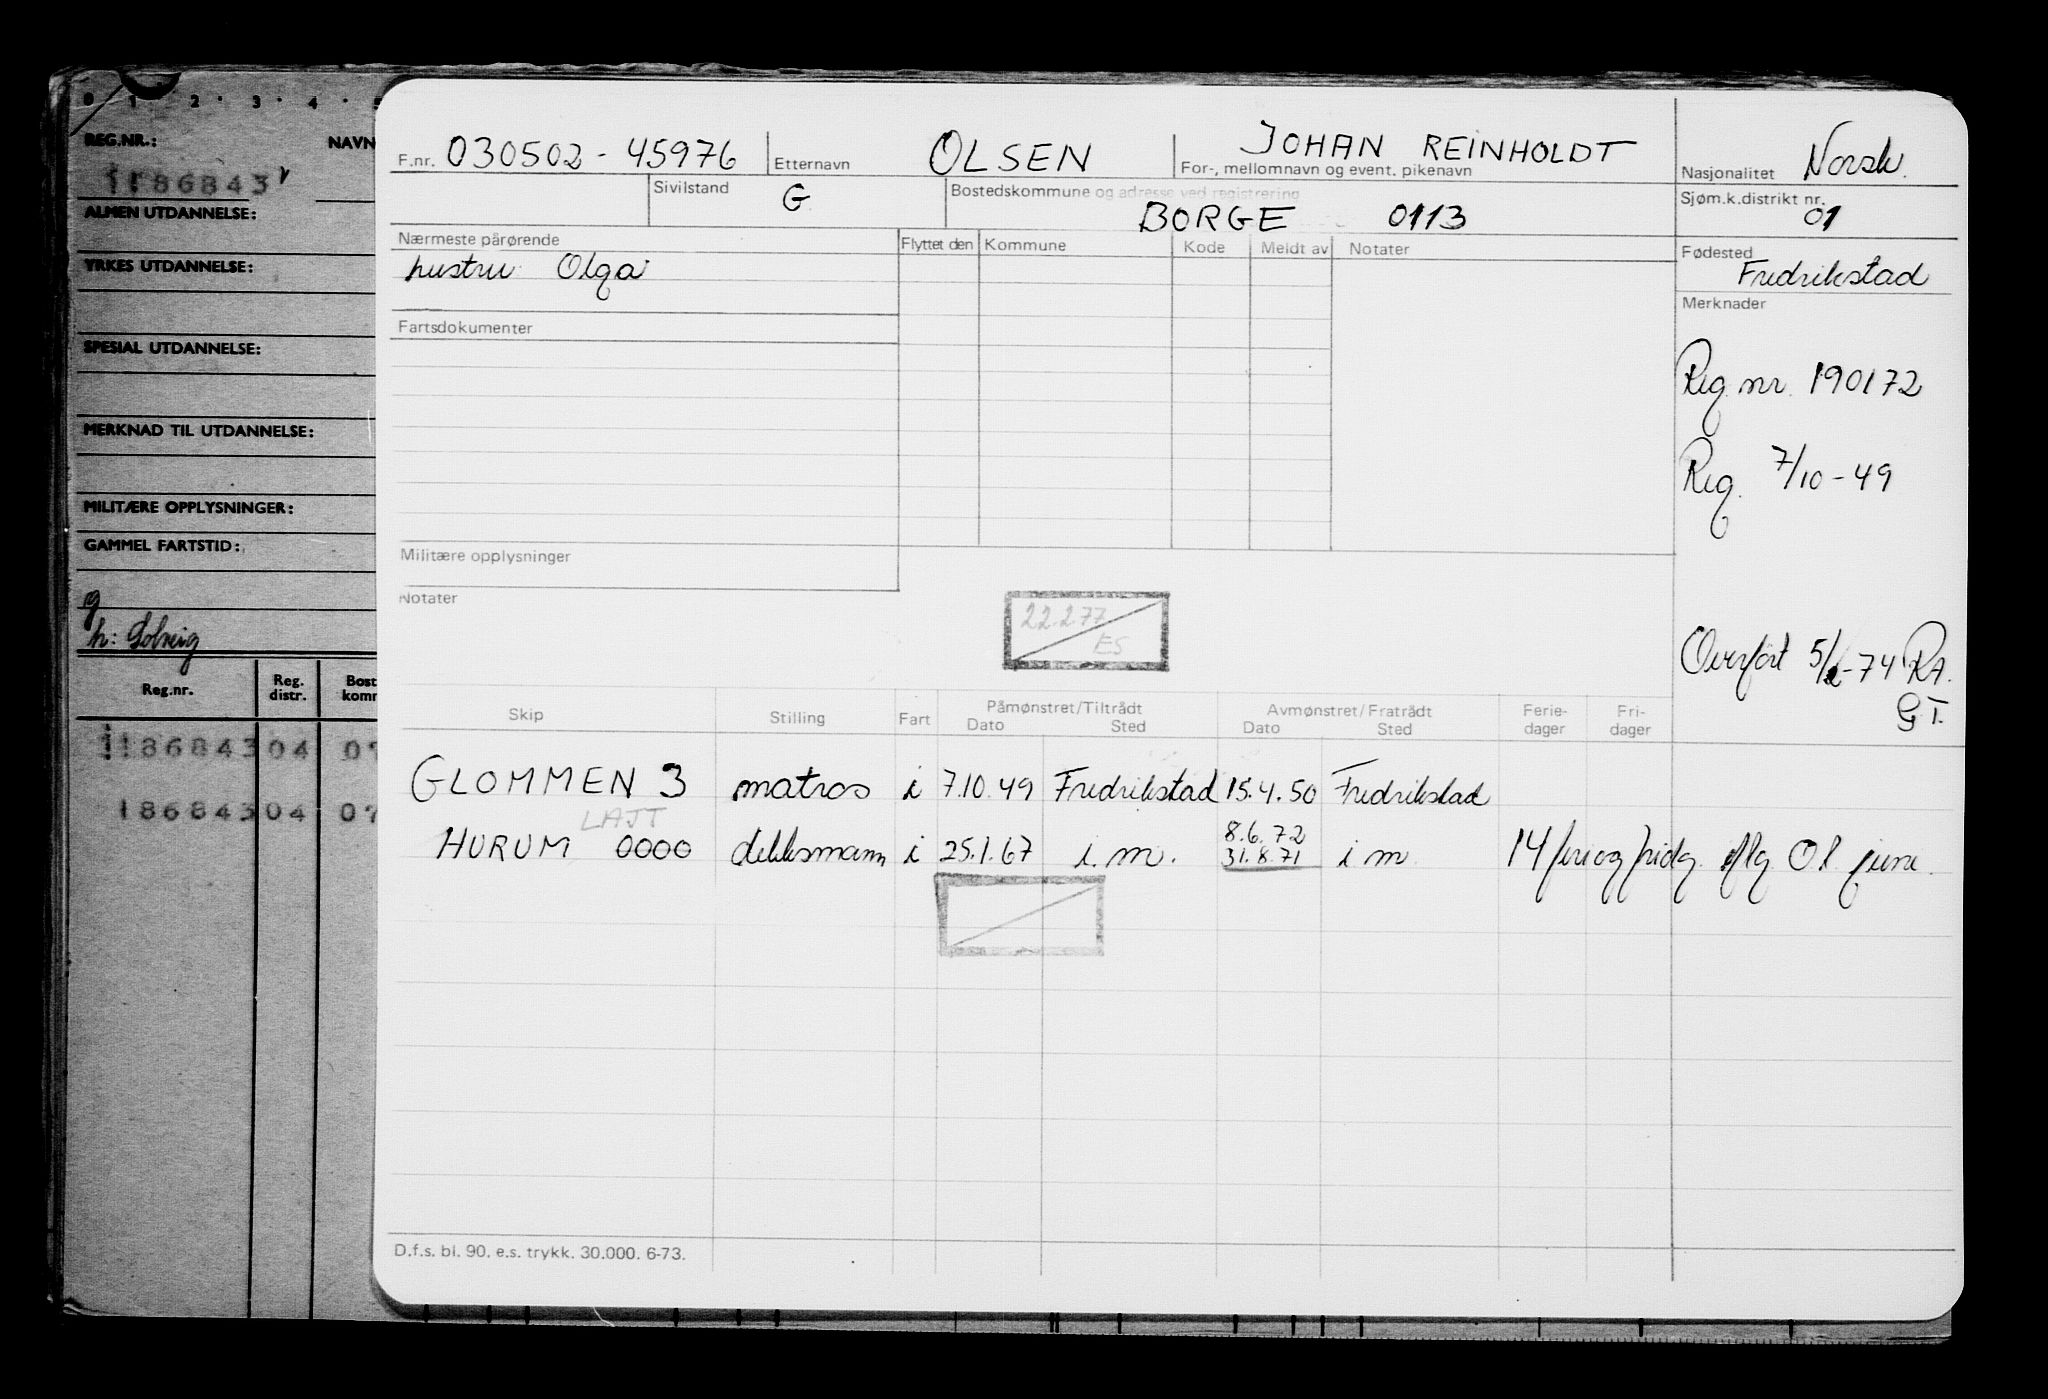 0 1 2 3 4 5
REG.NR.: NAVN
1186843
ALMEN UTDANNELSE:
YRKES UTDANNELSE:
SPESIAL UTDANNELSE:
MERKNAD TIL UTDANNELSE:
MILITÆRE OPPLYSNINGER:
GAMMEL FARTSTID:
g
h: Solveig
Reg.nr. Reg. distr. Bost komm
1186843 04 07
186843 04 07
F.nr. 030502 - 45976 Etternavn OLSEN JOHAN REINHOLDT
For-, mellomnavn og event. pikenavn
Nasjonalitet Norsk.
Sivilstand G Bostedskommune og adresse ved registrering
BORGE 0113
Sjøm.k.distrikt nr.
01
Nærmeste pårørende Flyttet den Kommune Kode Meldt av Notater
hustru Olga
Fødested
Fredrikstad
Merknader
Fartsdokumenter
Reg. nr. 190172
Reg. 7/10-49
Militære opplysninger
Notater
22.2.77
ES
Overført 5/2-74 RA.
G T.
Skip Stilling Fart Påmønstret/Tiltrådt Avmønstret/Fratrådt Ferie- Fri-
Dato Sted Dato Sted dager dager
GLOMMEN 3 matros i 7.10.49 Fredrikstad 15.4.50 Fredrikstad
LAJT 8.6.72
HURUM 0000 dekksmann i 25.1.67 i.m. 31.8.71 i m. 14 ferie og fridg. iflg O.l. june.
D.f.s. bl. 90. e.s. trykk. 30.000. 6-73.